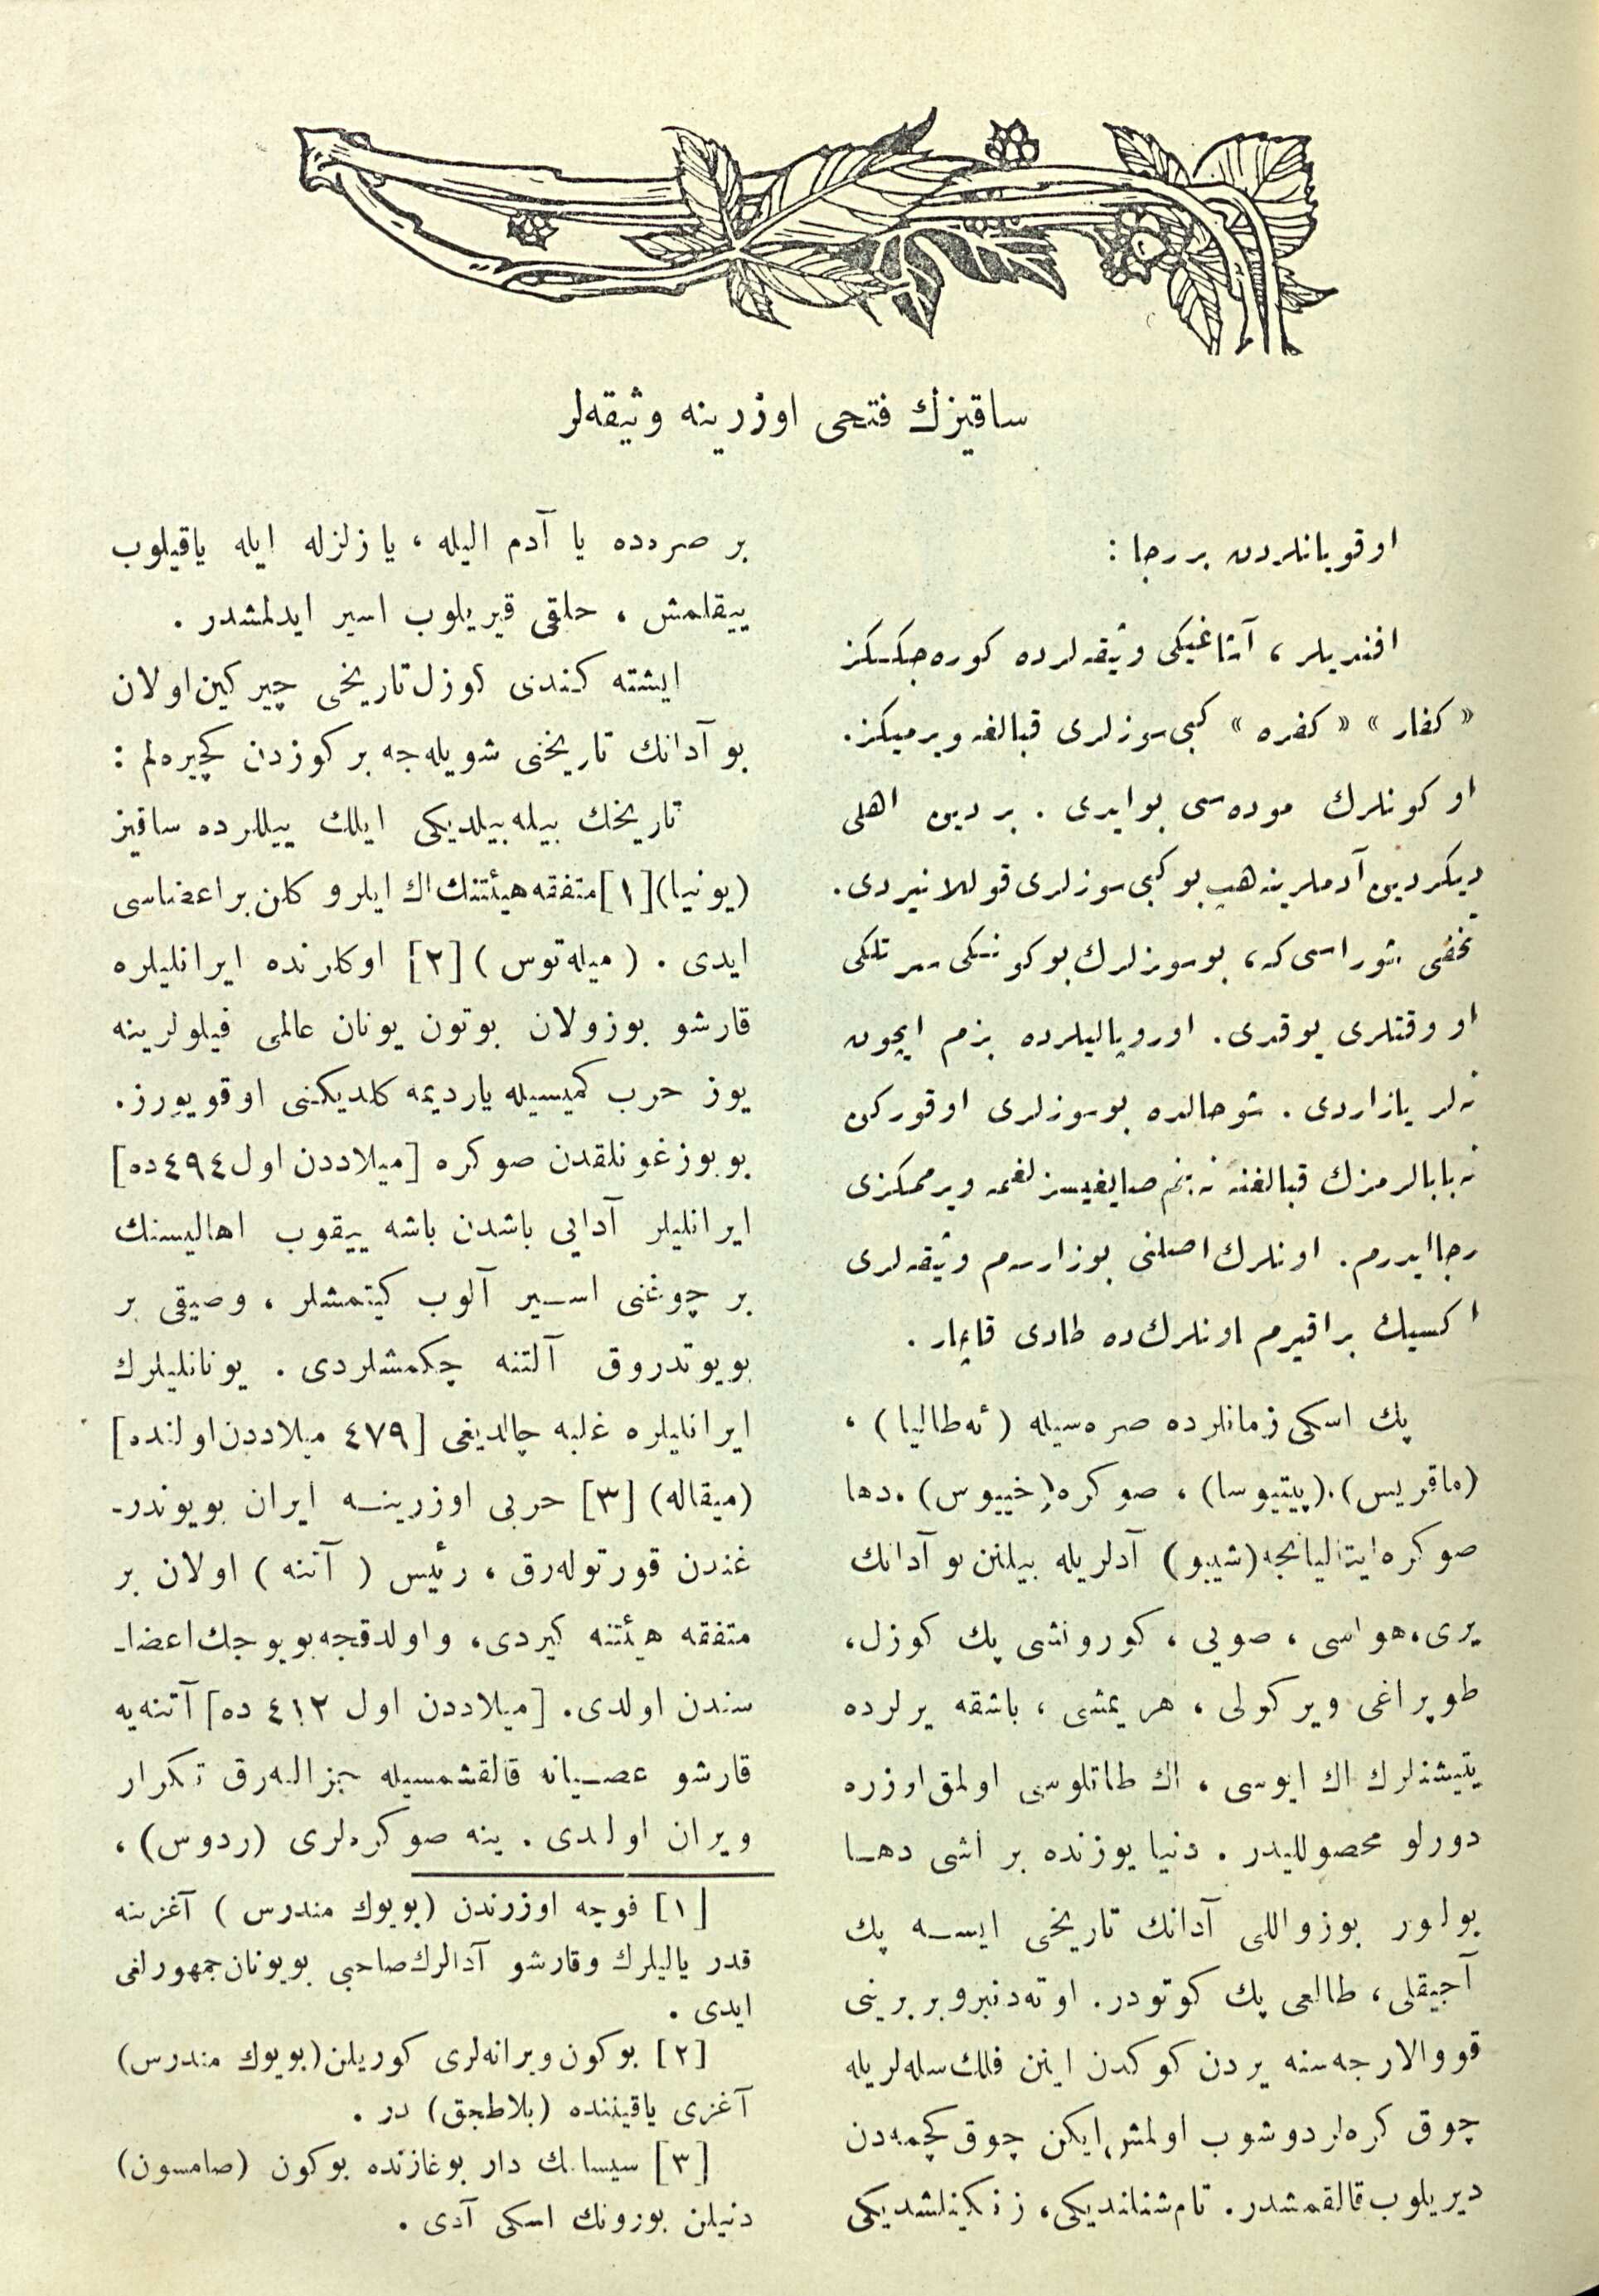 ساقیزك فتحی اوزرینه وثیقه‌لر
اوقویانلردن بر رجا :
افندیلر ، آشاغیکی وثیقه‌لرده کوره‌جکسکز
« کفار » « کفره » کبی سوزلری قبالغه ویرمیکز.
او کونلرك موده‌سی بو ایدی . بر دین اهلی
دیکر دین آدملرینه هپ بو کبی سوزلری قوللانیردی.
تحفی شوراسی که، بو سوزلرك بو کونکی سرتلکی
او وقتلری یوقدی. اوروپالیلرده بزم ایچون
نه‌لر یازاردی . شو حالده بو سوزلری اوقورکن
نه بابالرمزك قبالغنه نه بنم صایغیسزلغمه ویرممکزی
رجا ایدرم. اونلرك اصلنی بوزارسه‌م وثیقه‌لری
اکسیك براقیرم اونلرك ده طادی قاچار .
پك اسکی زمانلرده صره‌سیله (ئه‌طالیا) ،
(ماقریس).(پیتیوسا) ، صوکره (خییوس) .دها
صوکره ایتالیانجه (شیو) آدلریله بیلنن بو آدانك
یری، هواسی ، صویی ، کورونشی پك کوزل،
طوپراغی ویرکولی ، هر یمشی ، باشقه یرلرده
یتیشنلرك اك ایوسی ، اك طاتلوسی اولمق اوزره
دورلو محصوللیدر . دنیا یوزنده بر اشی دهـا
بولور بوزواللی آدانك تاریخی ایسـه پك
آجیقلی، طالعی پك کوتودر. اوته‌دنبرو بر برینی
قووالارجه‌سنه یردن کوکدن اینن فلك سله‌لریله
چوق کره‌لر دوشوب اولمش ایکن چوق کچمه‌دن
دیریلوب قالقمشدر. تام شنلندیکی، زنکینلشدیکی
بر صرەده یا آدم الیله ، یا زلزله ایله یاقیلوب
ییقلمش ، خلقی قیریلوب اسیر ایدلمشدر .
ایشته کندی کوزل تاریخی چیرکین اولان
بو آدانك تاریخنی شویله‌جه بر کوزدن کچیره‌لم :
تاریخك بیله‌بیلدیکی ایلك ییللرده ساقیز
(یونیا) [۱] متفقه هیئتنك اك ایلرو کلن بر اعضاسی
ایدی . ( میله‌توس ) [۲] اوکلرنده ایرانلیلره
قارشو بوزولان بوتون یونان عالمی فیلولرینه
یوز حرب کمیسیله یاردیمه کلدیکنی اوقویورز.
بو بوزغونلقدن صوکره [میلاددن اول ٤٩٤ ده]
ایرانلیلر آدایی باشدن باشه ییقوب اهالیسنك
بر چوغنی اسـیر آلوب کیتمشلر ، وصیقی بر
بویوتدروق آلتنه چکمشلردی . یونانلیلرك
ایرانلیلره غلبه چالدیغی [٤٧٩ میلاددن اولنده]
(میقاله) [۳] حربی اوزرینـه ایران بویوندر‌ـ
غندن قورتوله‌رق ، رئیس ( آتنه ) اولان بر
متفقه هیئتنه کیردی، و اولدقجه بویوجك اعضا‌ـ
سندن اولدی. [میلاددن اول ٤١٢ ده] آتنه‌یه
قارشو عصـیانه قالقشمسیله جزالـه‌رق تکرار
ویران اولدی . ینه صوکره‌لری (ردوس) ،
[۱] فوچه اوزرندن (بویوك مندرس ) آغزینه
قدر یالیلرك وقارشو آدالرك صاحبی بویونان جمهورلغی
ایدی .
[۲] بوکون ویرانه‌لری کوریلن (بویوك مندرس)
آغزی یاقیننده (بلاطجق) در .
[۳] سیسامك دار بوغازنده بوکون (صامسون)
دنیلن بورونك اسکی آدی .